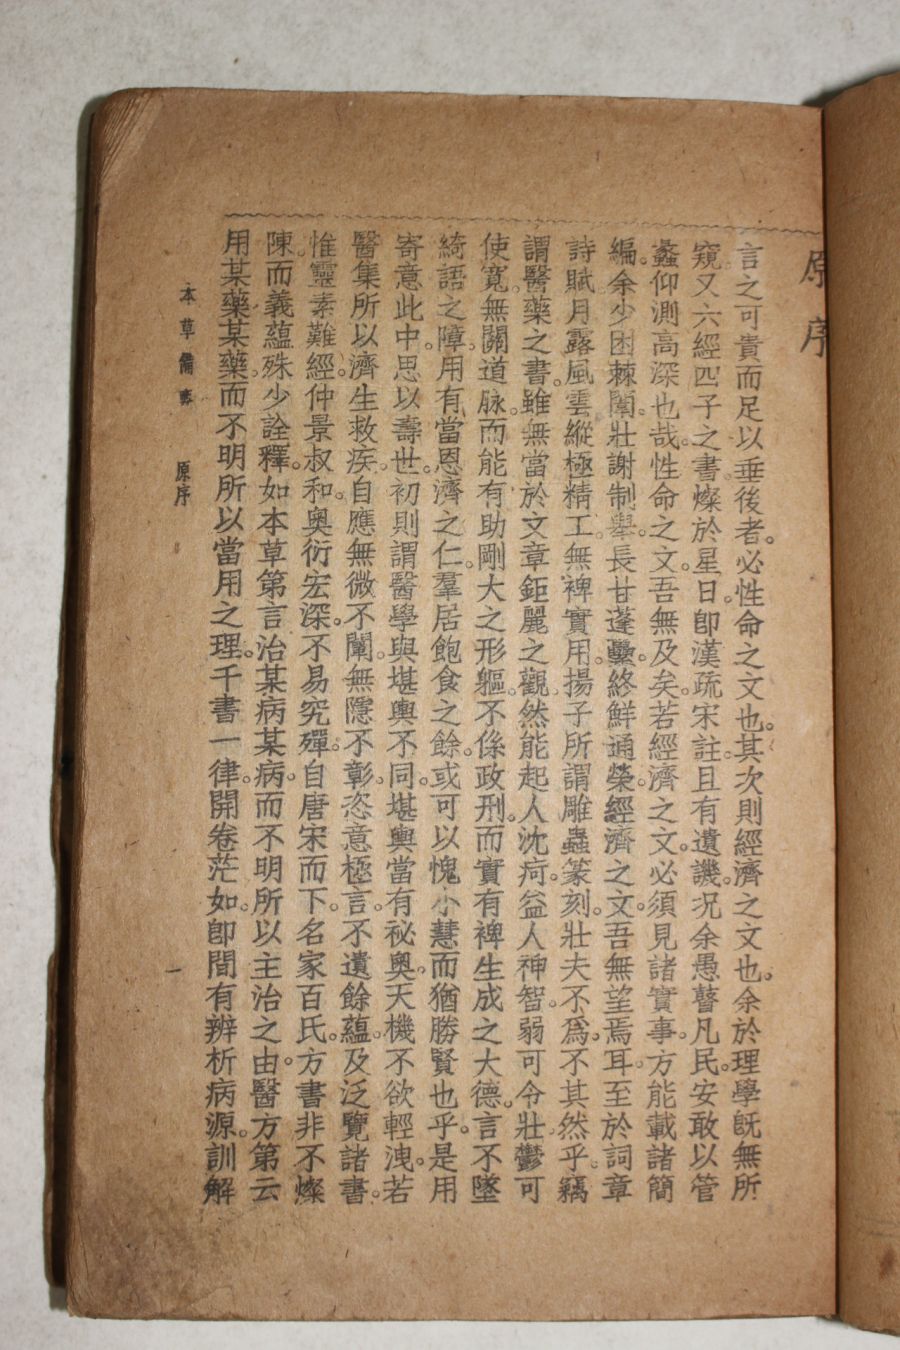 原序
言之可貴而足以垂後者。必性命之文也。其次則經濟之文也。余於理學旣無所
窺。又六經四子之書。燦於星日。卽漢疏宋註。且有遺譏。況余愚瞽凡民。安敢以管
蠡仰測高深也哉。性命之文。吾無及矣。若經濟之文。必須見諸實事。方能載諸簡
編。余少困棘闈。壯謝制舉。長甘蓬纍。終鮮通榮。經濟之文。吾無望焉耳。至於詞章
詩賦。月露風雲。縱極精工。無裨實用。揚子所謂雕蟲篆刻。壯夫不爲。不其然乎。竊
謂醫藥之書。雖無當於文章鉅麗之觀。然能起人沈疴。益人神智。弱可令壯。鬱可
使寬。無關道脉。而能有助剛大之形軀。不係政刑。而實有裨生成之大德。言不墜
綺語之障。用有當恩濟之仁。羣居飽食之餘。或可以愧小慧而猶勝賢也乎。是用
寄意此中。思以壽世。初則謂醫學與堪輿不同。堪輿當有祕奧。天機不欲輕洩。若
醫集所以濟生救疾。自應無微不闡。無隱不彰。恣意極言。不遺餘蘊。及泛覽諸書。
惟靈素難經。仲景叔和。奧衍宏深。不易究殫。自唐宋而下。名家百氏。方書非不燦
陳。而義蘊殊少詮釋。如本草第言治某病某病。而不明所以主治之由。醫方第云
用某藥某藥。而不明所以當用之理。千書一律。開卷茫如。卽間有辨析病源。訓解
本草備要 原序 一